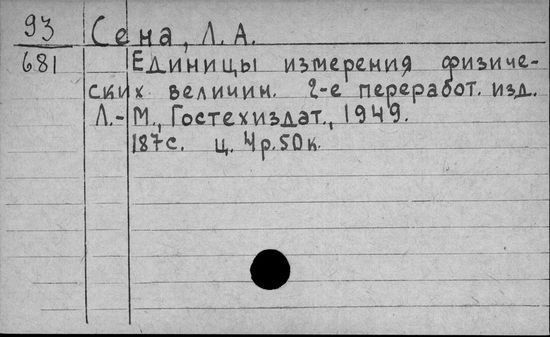 93 Сена, Л. А.
681 Единицы измерения физиче-
ских величин. 2-е переработ. изд.
Л.-М., Гостехиздат., 1949.
187с. ц. 4р.50к.